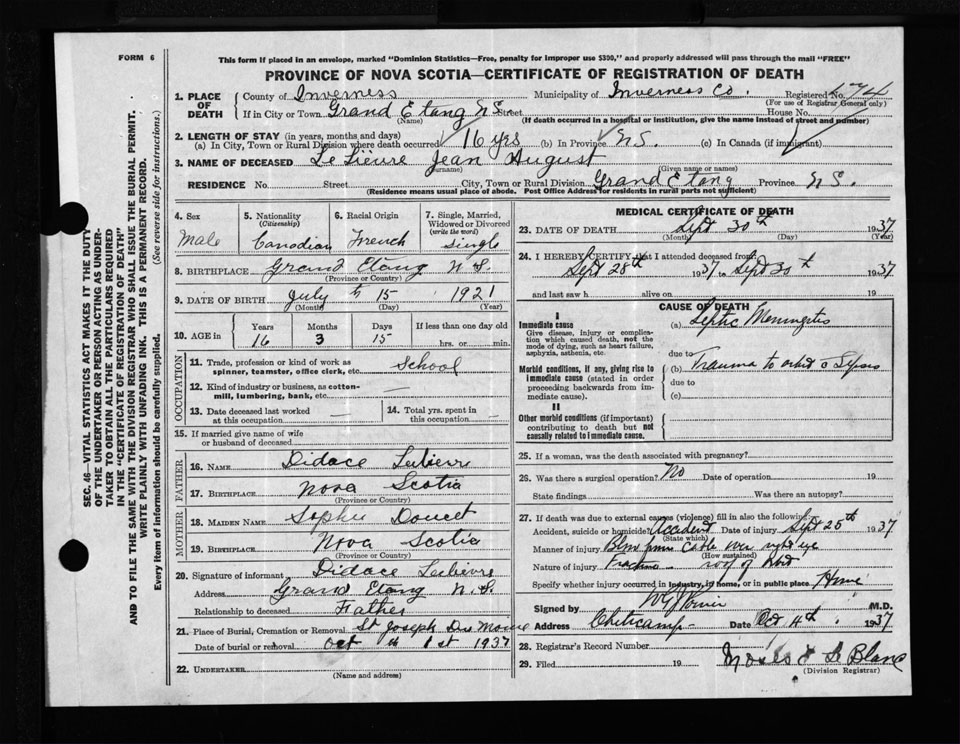 FORM 6
This form if placed in an envelope, marked "Dominion Statistics—Free, penalty for improper use $300," and properly addressed will pass through the mail "FREE"
PROVINCE OF NOVA SCOTIA—CERTIFICATE OF REGISTRATION OF DEATH
1. PLACE OF DEATH
County of Inverness Municipality of Inverness Co. Registered No. 74
(For use of Registrar General only)
If in City or Town Grand Etang N S Street House No.
(Name) (If death occurred in a hospital or institution, give the name instead of street and number)
2. LENGTH OF STAY (in years, months and days)
(a) In City, Town or Rural Division where death occurred 16 yrs (b) In Province N S. (c) In Canada (if immigrant)
3. NAME OF DECEASED LeLievre Jean August
(Surname) (Given name or names)
RESIDENCE No. Street City, Town or Rural Division Grand Etang Province N S.
(Residence means usual place of abode. Post Office Address for residents in rural parts not sufficient)
4. Sex
Male
5. Nationality
(Citizenship)
Canadian
6. Racial Origin
French
7. Single, Married, Widowed or Divorced
(write the word)
Single
8. BIRTHPLACE Grand Etang N S.
(Province or Country)
9. DATE OF BIRTH July th 15 1921
(Month) (Day) (Year)
10. AGE in
Years Months Days If less than one day old
16 3 15 hrs. or min.
OCCUPATION
11. Trade, profession or kind of work as spinner, teamster, office clerk, etc. School
12. Kind of industry or business, as cotton-mill, lumbering, bank, etc.
13. Date deceased last worked at this occupation —
14. Total yrs. spent in this occupation —
15. If married give name of wife or husband of deceased
FATHER
16. NAME Didace Lelievre
17. BIRTHPLACE Nova Scotia
(Province or Country)
MOTHER
18. MAIDEN NAME Sophie Doucet
19. BIRTHPLACE Nova Scotia
(Province or Country)
20. Signature of informant Didace Lelievre
Address Grand Etang N. S.
Relationship to deceased Father
21. Place of Burial, Cremation or Removal St Joseph Du Moine
Date of burial or removal Oct th 1st 1937
22. UNDERTAKER
(Name and address)
MEDICAL CERTIFICATE OF DEATH
23. DATE OF DEATH Sept 30th 1937
(Month) (Day) (Year)
24. I HEREBY CERTIFY that I attended deceased from
Sept 28th 1937 to Sept 30th 1937
and last saw h alive on 19
CAUSE OF DEATH
I
Immediate cause
Give disease, injury or complication which caused death, not the mode of dying, such as heart failure, asphyxia, asthenia, etc.
(a) Septic Meningitis
due to
Morbid conditions, if any, giving rise to immediate cause (stated in order proceeding backwards from immediate cause).
(b) Trauma to orbit c Sepsis
due to
(c)
II
Other morbid conditions (if important) contributing to death but not causally related to immediate cause.
25. If a woman, was the death associated with pregnancy?
26. Was there a surgical operation? No Date of operation 19
State findings Was there an autopsy?
27. If death was due to external causes (violence) fill in also the following:
Accident, suicide or homicide? Accident Date of injury Sept 25th 1937
(State which)
Manner of injury Blow from Cable wire right eye
(How sustained)
Nature of injury roof of orbit
Specify whether injury occurred in industry, in home, or in public place Home
Signed by M.D.
Address Cheticamp Date Oct 4th 1937
28. Registrar's Record Number
29. Filed 19
(Division Registrar)
SEC. 46—VITAL STATISTICS ACT MAKES IT THE DUTY OF THE UNDERTAKER OR PERSON ACTING AS UNDERTAKER TO OBTAIN ALL THE PARTICULARS REQUIRED IN THE "CERTIFICATE OF REGISTRATION OF DEATH"
AND TO FILE THE SAME WITH THE DIVISION REGISTRAR WHO SHALL ISSUE THE BURIAL PERMIT.
WRITE PLAINLY WITH UNFADING INK. THIS IS A PERMANENT RECORD.
Every item of information should be carefully supplied. (See reverse side for instructions.)